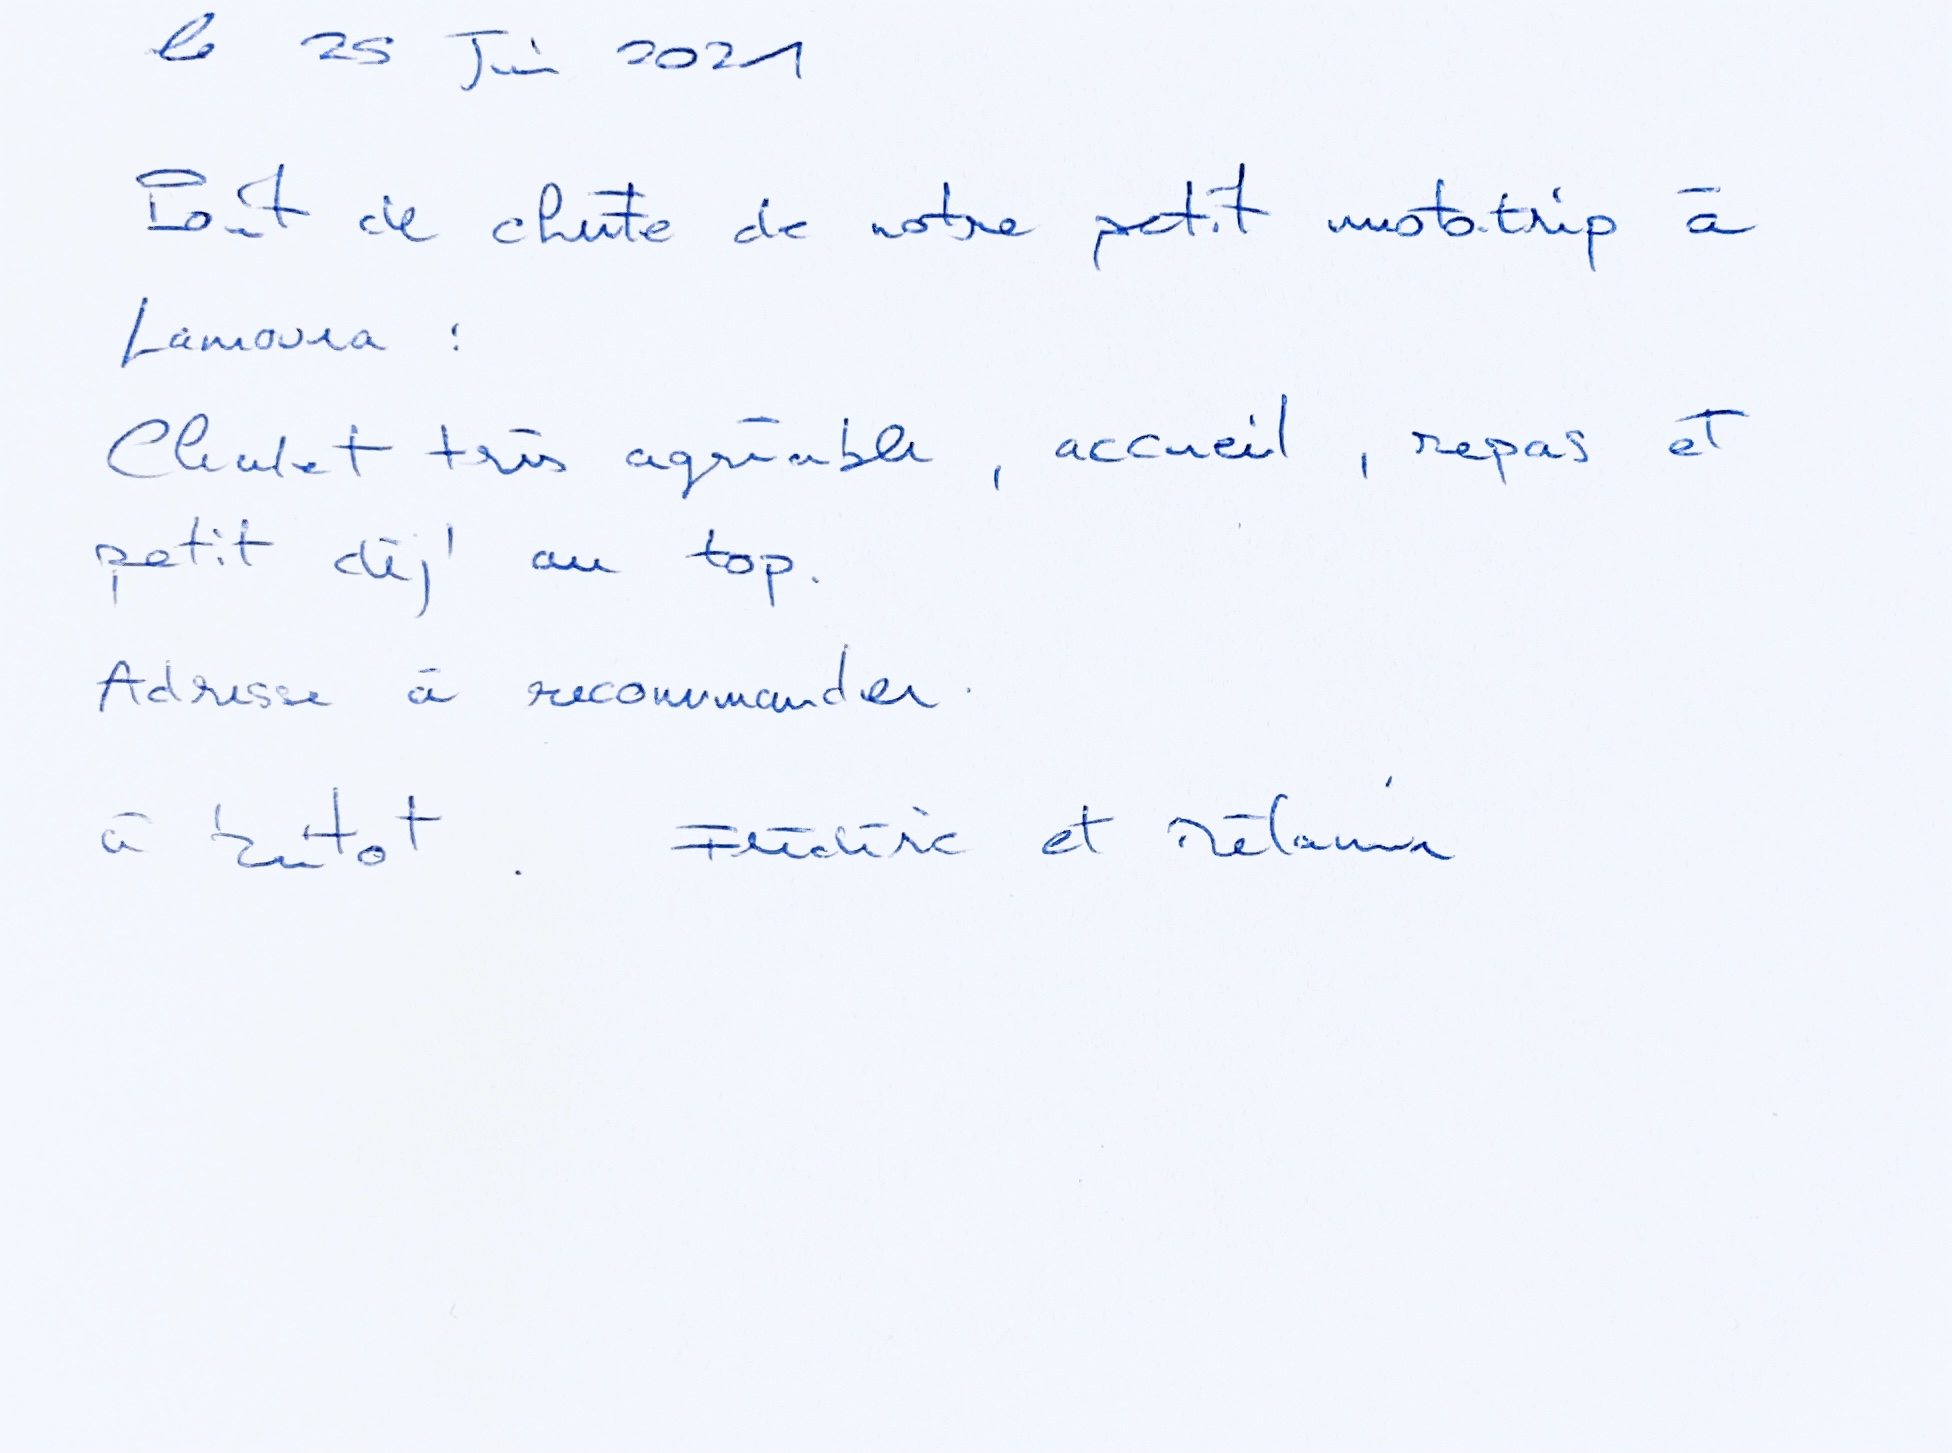 le 25 Juin 2021
Point de chute de notre petit mototrip à
Lamoura :
Chalet très agréable, accueil, repas et
petit déj' au top.
Adresse à recommander.
à bientot. Frédéric et Mélanie